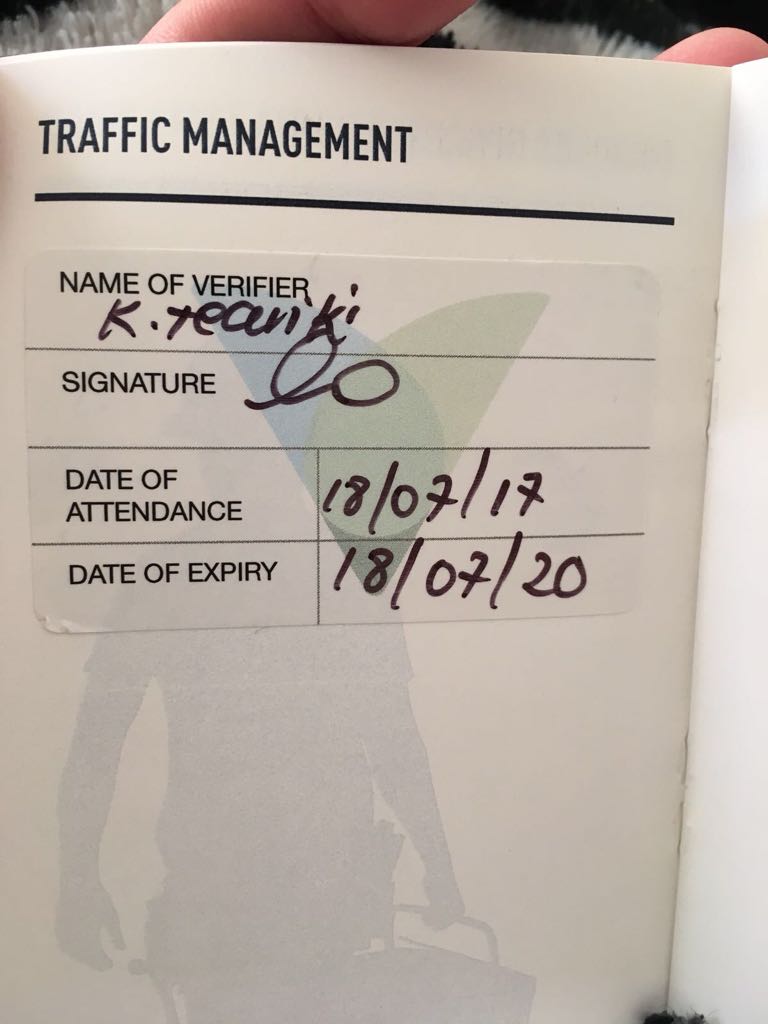 TRAFFIC MANAGEMENT
NAME OF VERIFIER
K. teariki
SIGNATURE
DATE OF
ATTENDANCE
18/07/17
DATE OF EXPIRY
18/07/20